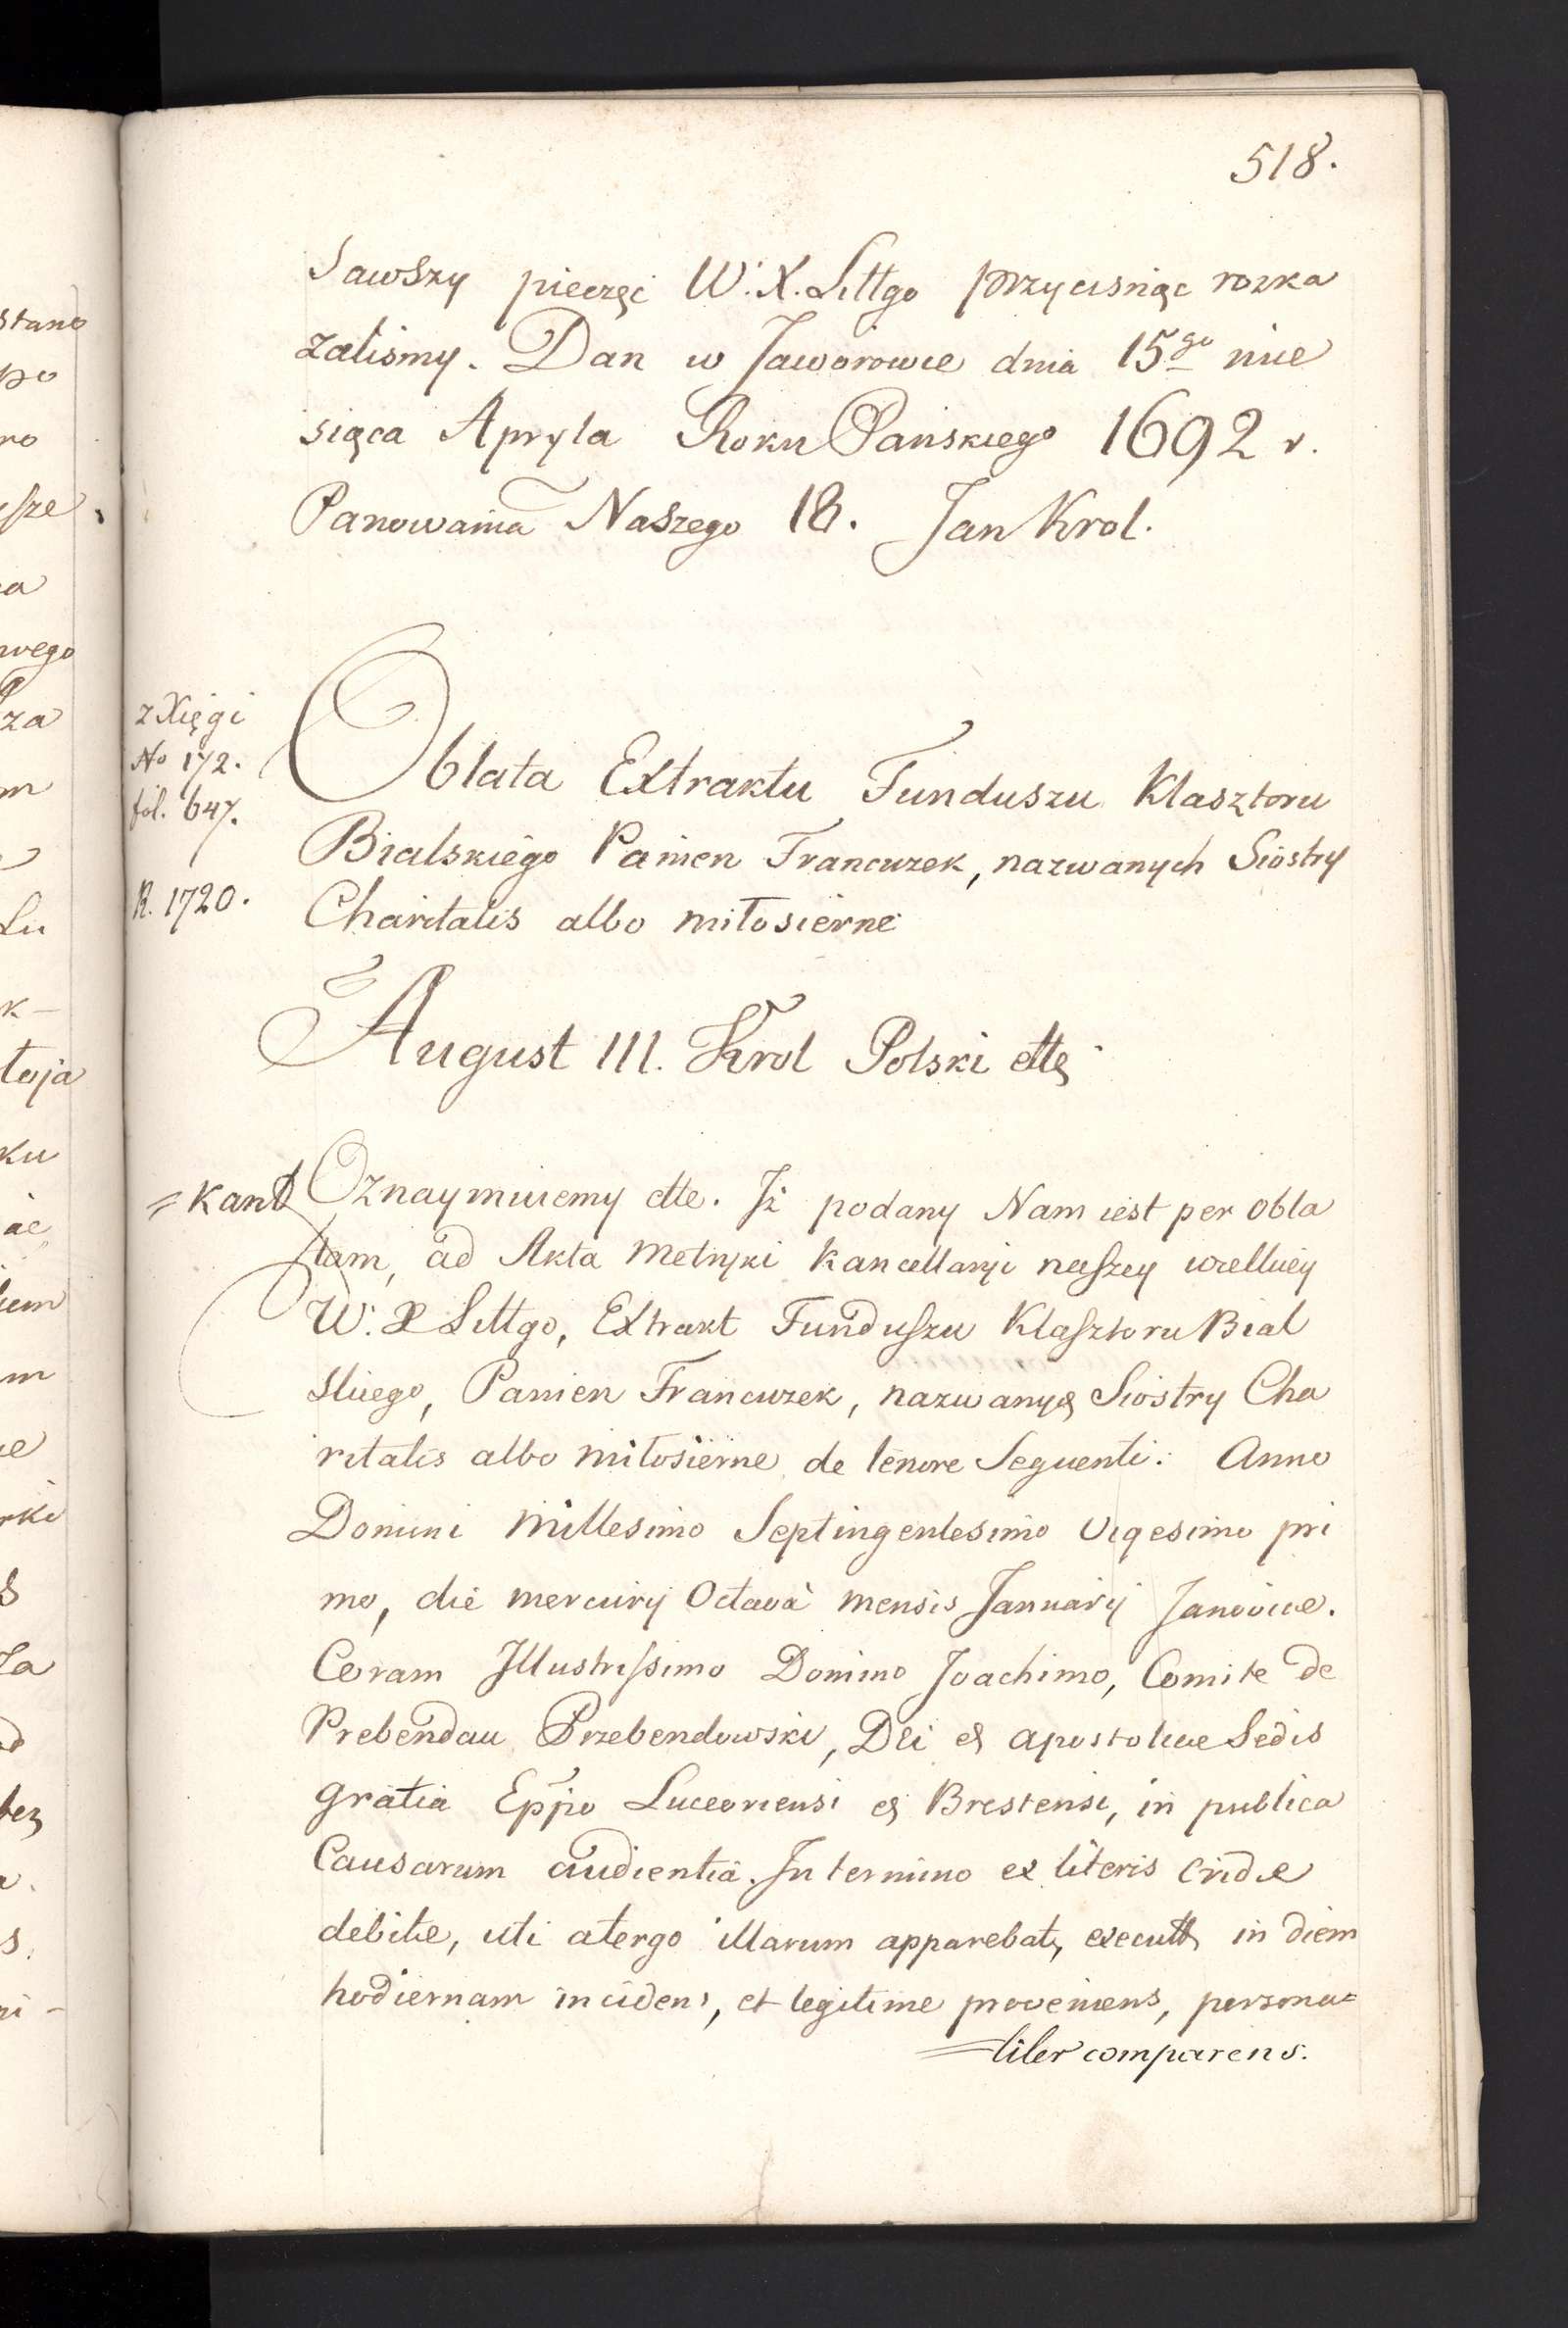 518.
sawszy pieczęć W. X. Littgo przycisnąć rozka
zalismy. Dan w Jaworowie dnia 15go mie
siąca Apryla Roku Pańskiego 1692 r.
Panowania Naszego 18. Jan Krol.
z Xięgi
No 172.
fol. 647.
R. 1720.
Oblata Extraktu Funduszu Klasztoru
Bialskiego Panien Francuzek, nazwanych Siostry
Charitatis albo miłosierne
August III. Krol Polski ettc
= Kant
Oznaymuiemy ette. Iż podany Nam iest per obla
tam, ad Akta Metryki Kancellaryi naszey wielkiey
W. X Littgo, Extrakt Funduszu Klasztoru Bial
skiego, Panien Francuzek, nazwanych Siostry Cha
ritatis albo miłosierne de tenore Sequenti: Anno
Domini Millesimo Septingentesimo vigesimo pri
mo, die mercurij Octava mensis Januarij Janoviae.
Coram Illustrissimo Domino Joachimo, Comite de
Prebendau Przebendowski, Dei et apostolicae Sedis
gratia Eppo Luceoriensi et Brestensi, in publica
Causarum audientia. In termino ex literis Cridae
debite, uti a tergo illarum apparebat, execut in diem
hodiernam incidens, et legitime proveniens, persona=
=liter comparens.
stano
po
ro
sze
a
wego
za
m
Lu
k-
toja
ku
ac
iem
m
ie
rki
s
za
d
tez
a.
s.
ni-